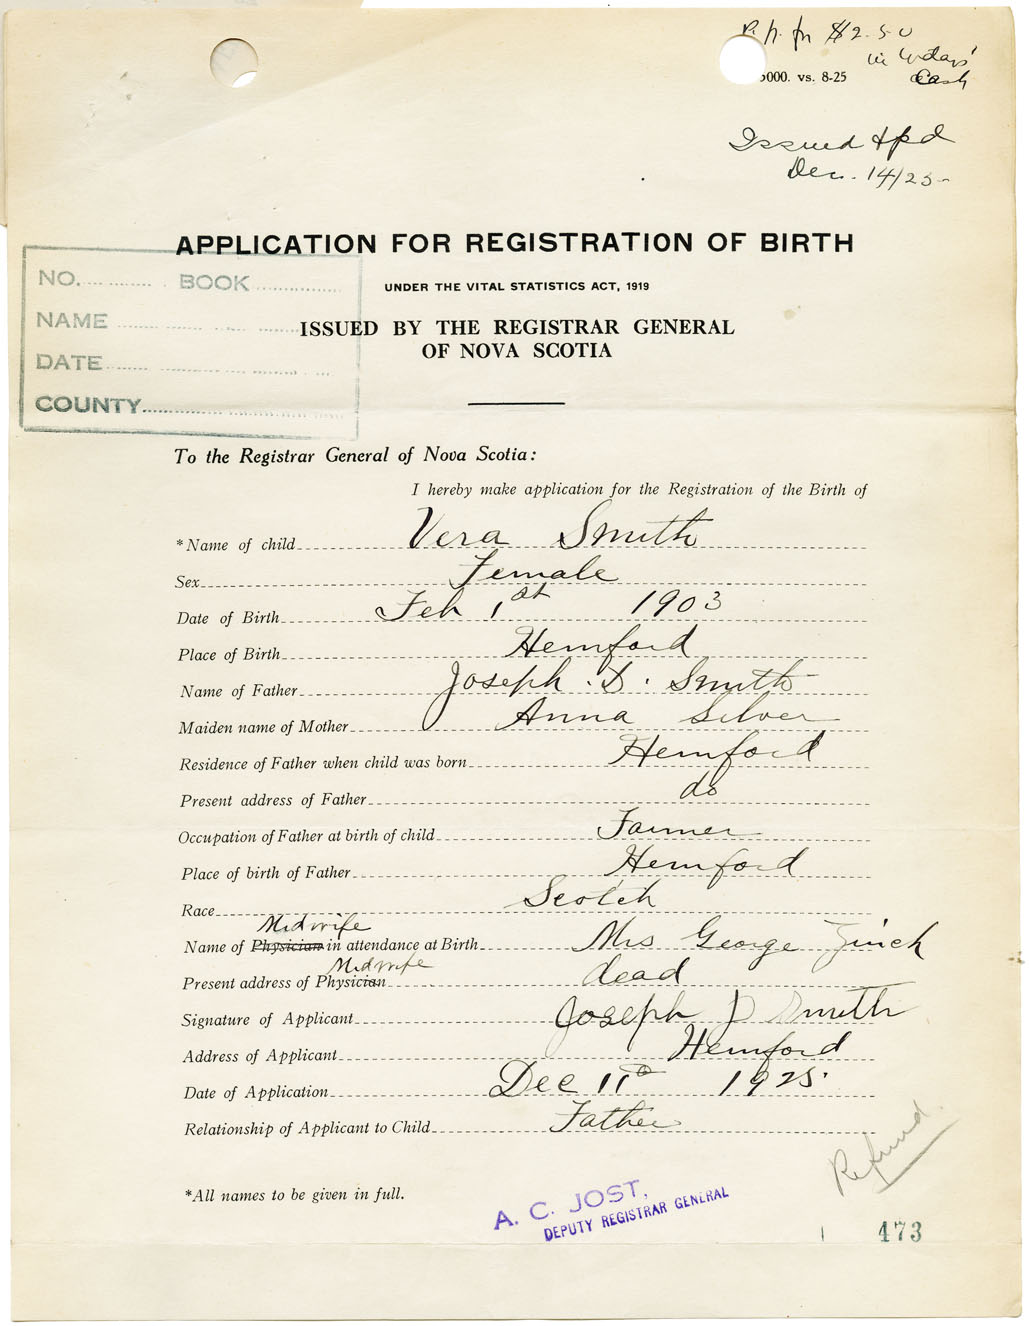 P. N. for $2.50
in today's
Cash
5000. vs. 8-25
Issued & pd
Dec. 14/25
APPLICATION FOR REGISTRATION OF BIRTH
NO. BOOK
UNDER THE VITAL STATISTICS ACT, 1919
NAME
ISSUED BY THE REGISTRAR GENERAL
OF NOVA SCOTIA
DATE
COUNTY
To the Registrar General of Nova Scotia:
I hereby make application for the Registration of the Birth of
*Name of child Vera Smith
Sex Female
Date of Birth Feb 1st 1903
Place of Birth Hemford
Name of Father Joseph . D . Smith
Maiden name of Mother Anna Silver
Residence of Father when child was born Hemford
Present address of Father do
Occupation of Father at birth of child Farmer
Place of birth of Father Hemford
Race Scotch
Midwife
Name of Physician in attendance at Birth Mrs George Zinck
Midwife
Present address of Physician dead
Signature of Applicant Joseph D Smith
Address of Applicant Hemford
Date of Application Dec 11th 1925.
Relationship of Applicant to Child Father
Refund
*All names to be given in full.
A. C. JOST,
DEPUTY REGISTRAR GENERAL
473